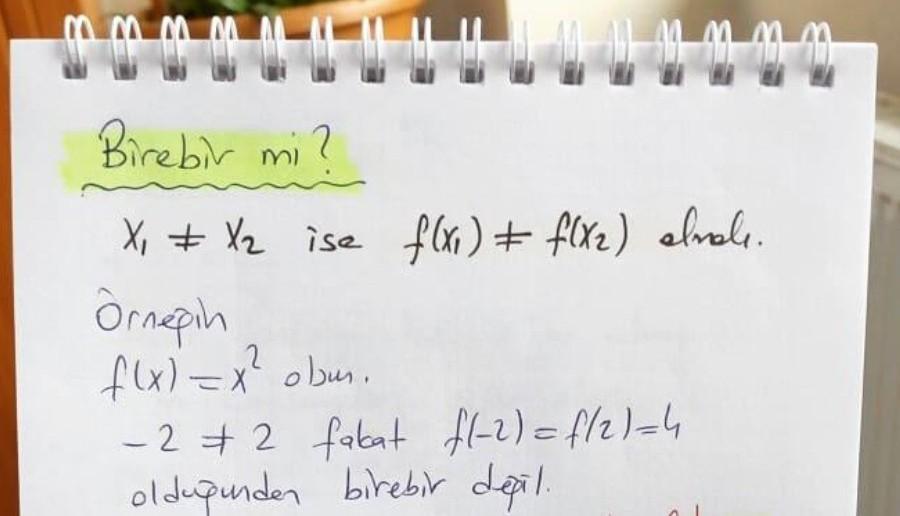 Birebir mi?
x₁ ≠ x₂ ise f(x₁) ≠ f(x₂) olmalı.
Örneğin
f(x) = x² olsun.
-2 ≠ 2 fakat f(-2) = f(2) = 4
olduğundan birebir değil.